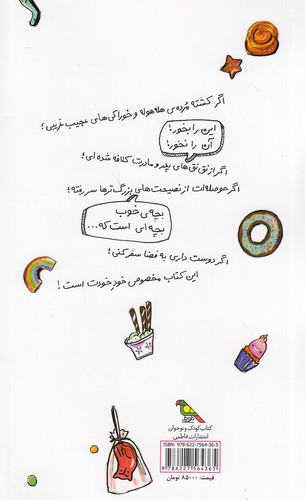 اگر کشته مُرده‌ی هله‌هوله و خوراکی‌های عجیب غریبی؛
این را بخور!
آن را نخور!
اگر از نق‌نق‌های پدر و مادرت کلافه شده‌ای؛
اگر حوصله‌ات از نصیحت‌های بزرگ‌ترها سر رفته؛
بچه‌ی خوب
بچه‌ای است که...
اگر دوست داری به فضا سفر کنی؛
این کتاب مخصوص خودِ خودت است!
طوطی
کتاب کودک و نوجوان
انتشارات فاطمی
ISBN: 978-622-7564-36-5
9786227564365
قیمت: ۸۵۰۰۰ تومان